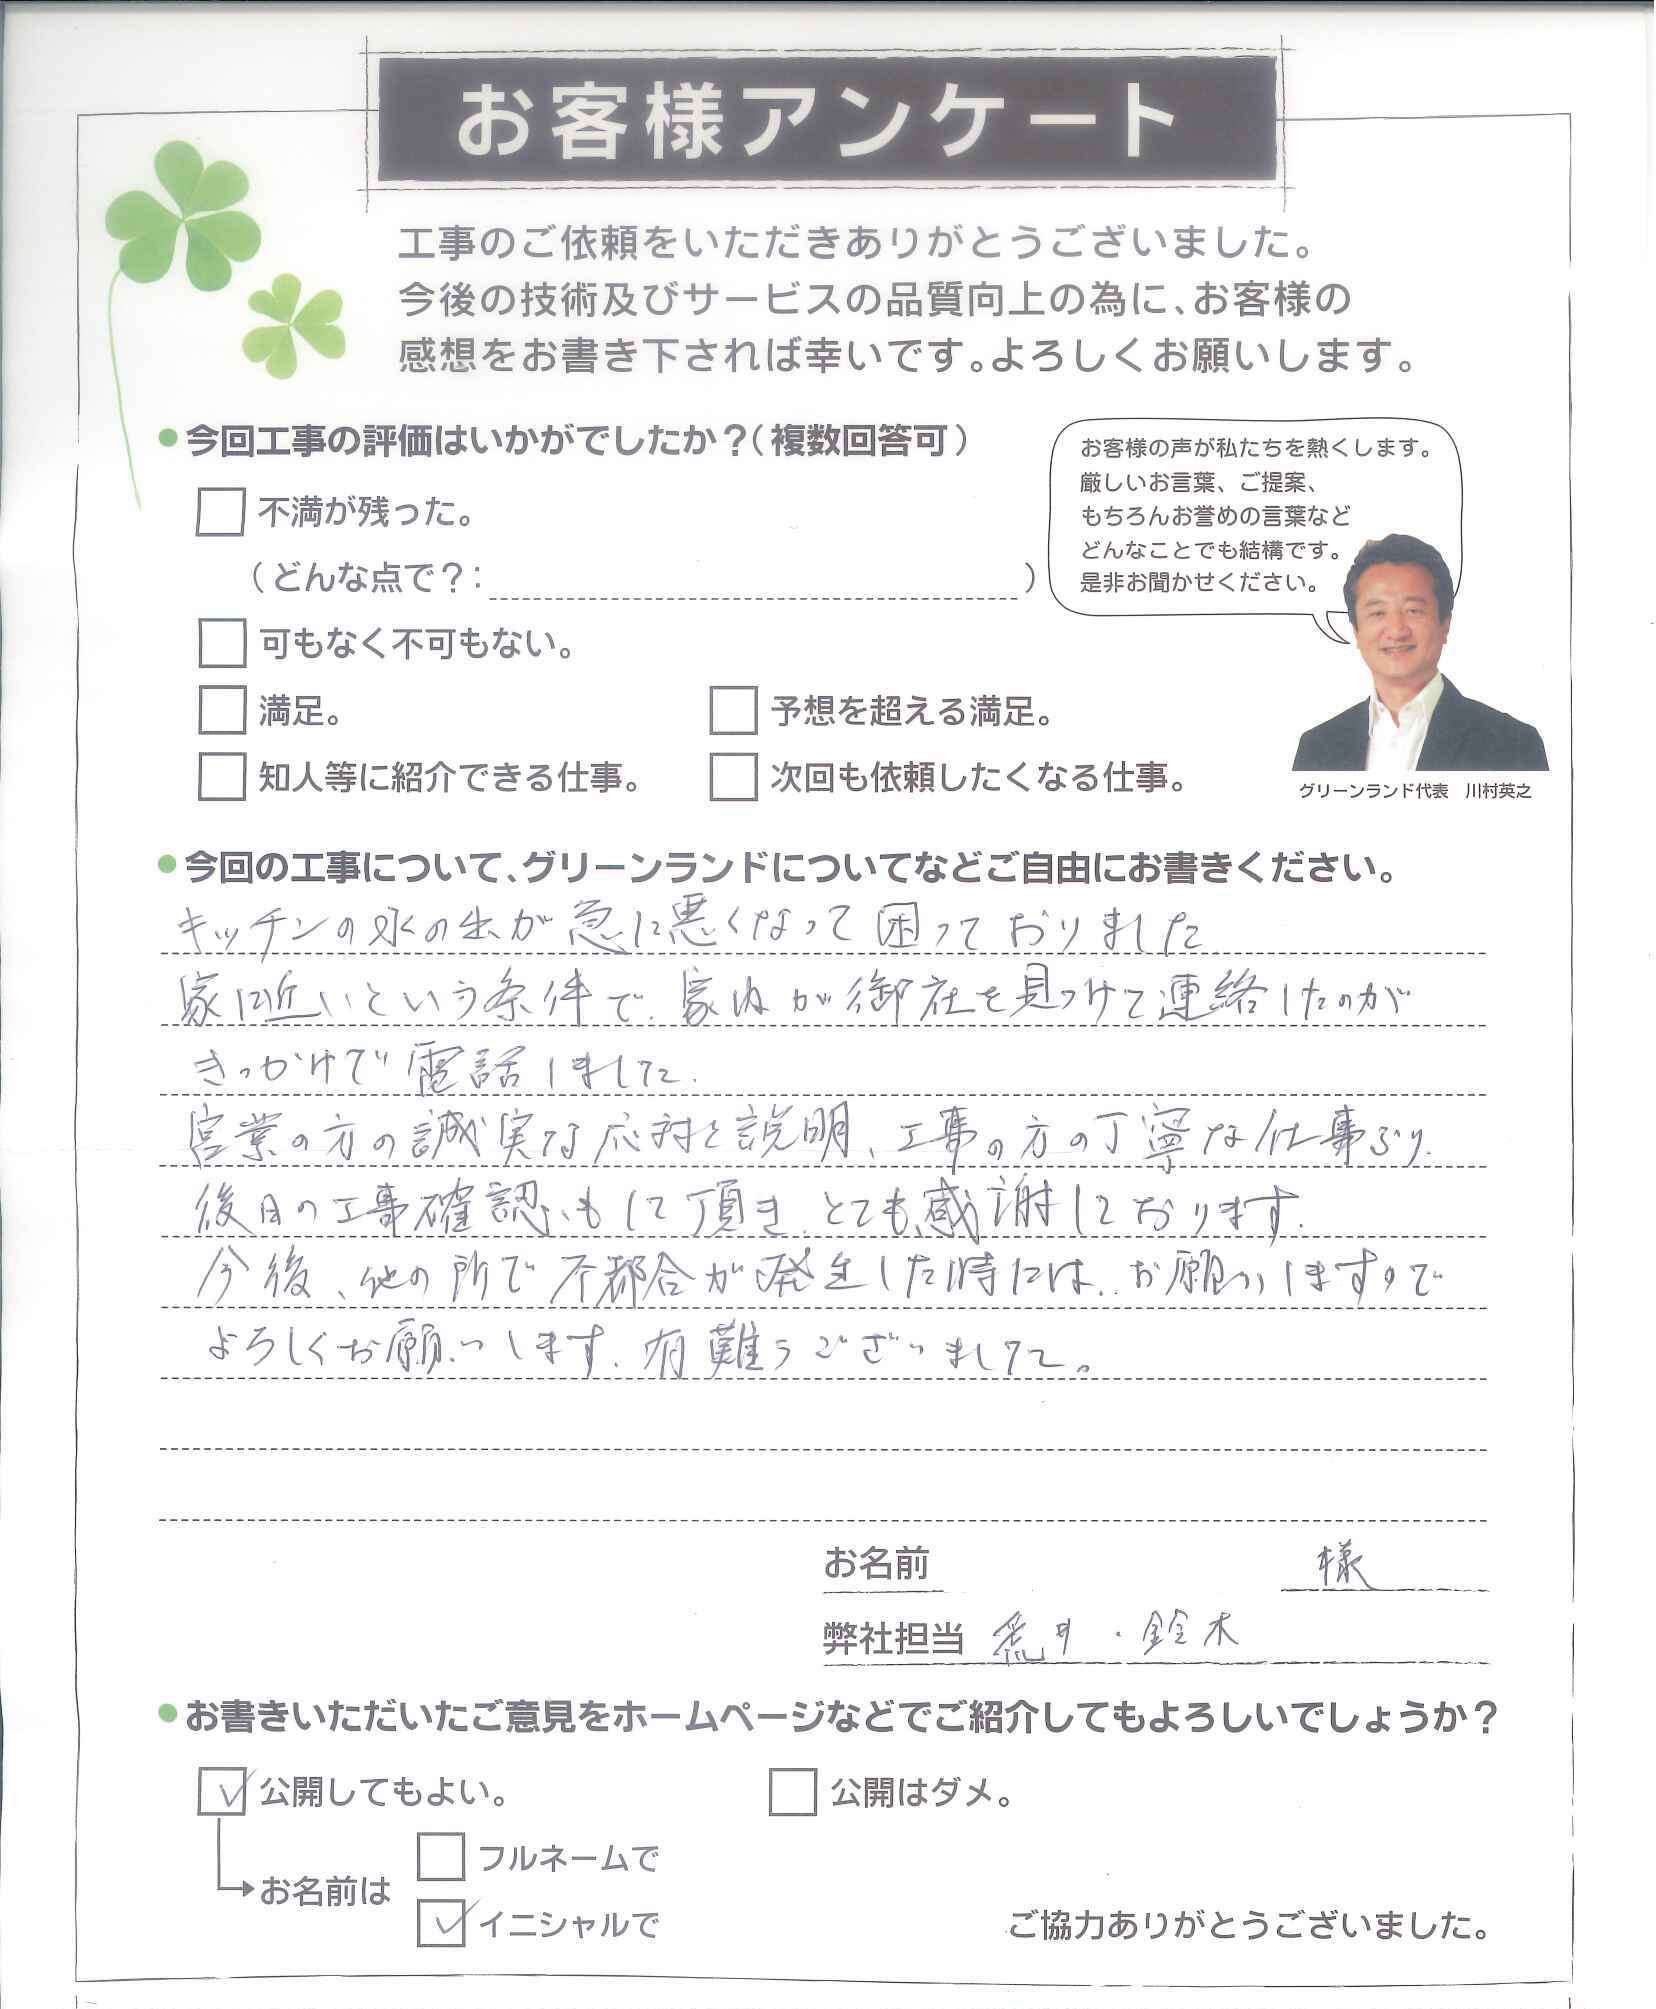 お客様アンケート
工事のご依頼をいただきありがとうございました。
今後の技術及びサービスの品質向上の為に、お客様の
感想をお書き下されば幸いです。よろしくお願いします。
●今回工事の評価はいかがでしたか？（複数回答可）
不満が残った。
（どんな点で？：　）
可もなく不可もない。
満足。
予想を超える満足。
知人等に紹介できる仕事。
次回も依頼したくなる仕事。
お客様の声が私たちを熱くします。
厳しいお言葉、ご提案、
もちろんお誉めの言葉など
どんなことでも結構です。
是非お聞かせください。
グリーンランド代表　川村英之
●今回の工事について、グリーンランドについてなどご自由にお書きください。
キッチンの水の出が急に悪くなって困っておりました
家に近いという条件で、家内が御社を見つけて連絡したのが
きっかけで電話しました.
営業の方の誠実な応対と説明、工事の方の丁寧な仕事ぶり.
後日の工事確認もして頂き、とても感謝しております.
今後、他の所で不都合が発生した時には、お願いしますので
よろしくお願いします. 有難うございました。
お名前　様
弊社担当　荒井・鈴木
●お書きいただいたご意見をホームページなどでご紹介してもよろしいでしょうか？
公開してもよい。
公開はダメ。
お名前は
フルネームで
イニシャルで
ご協力ありがとうございました。